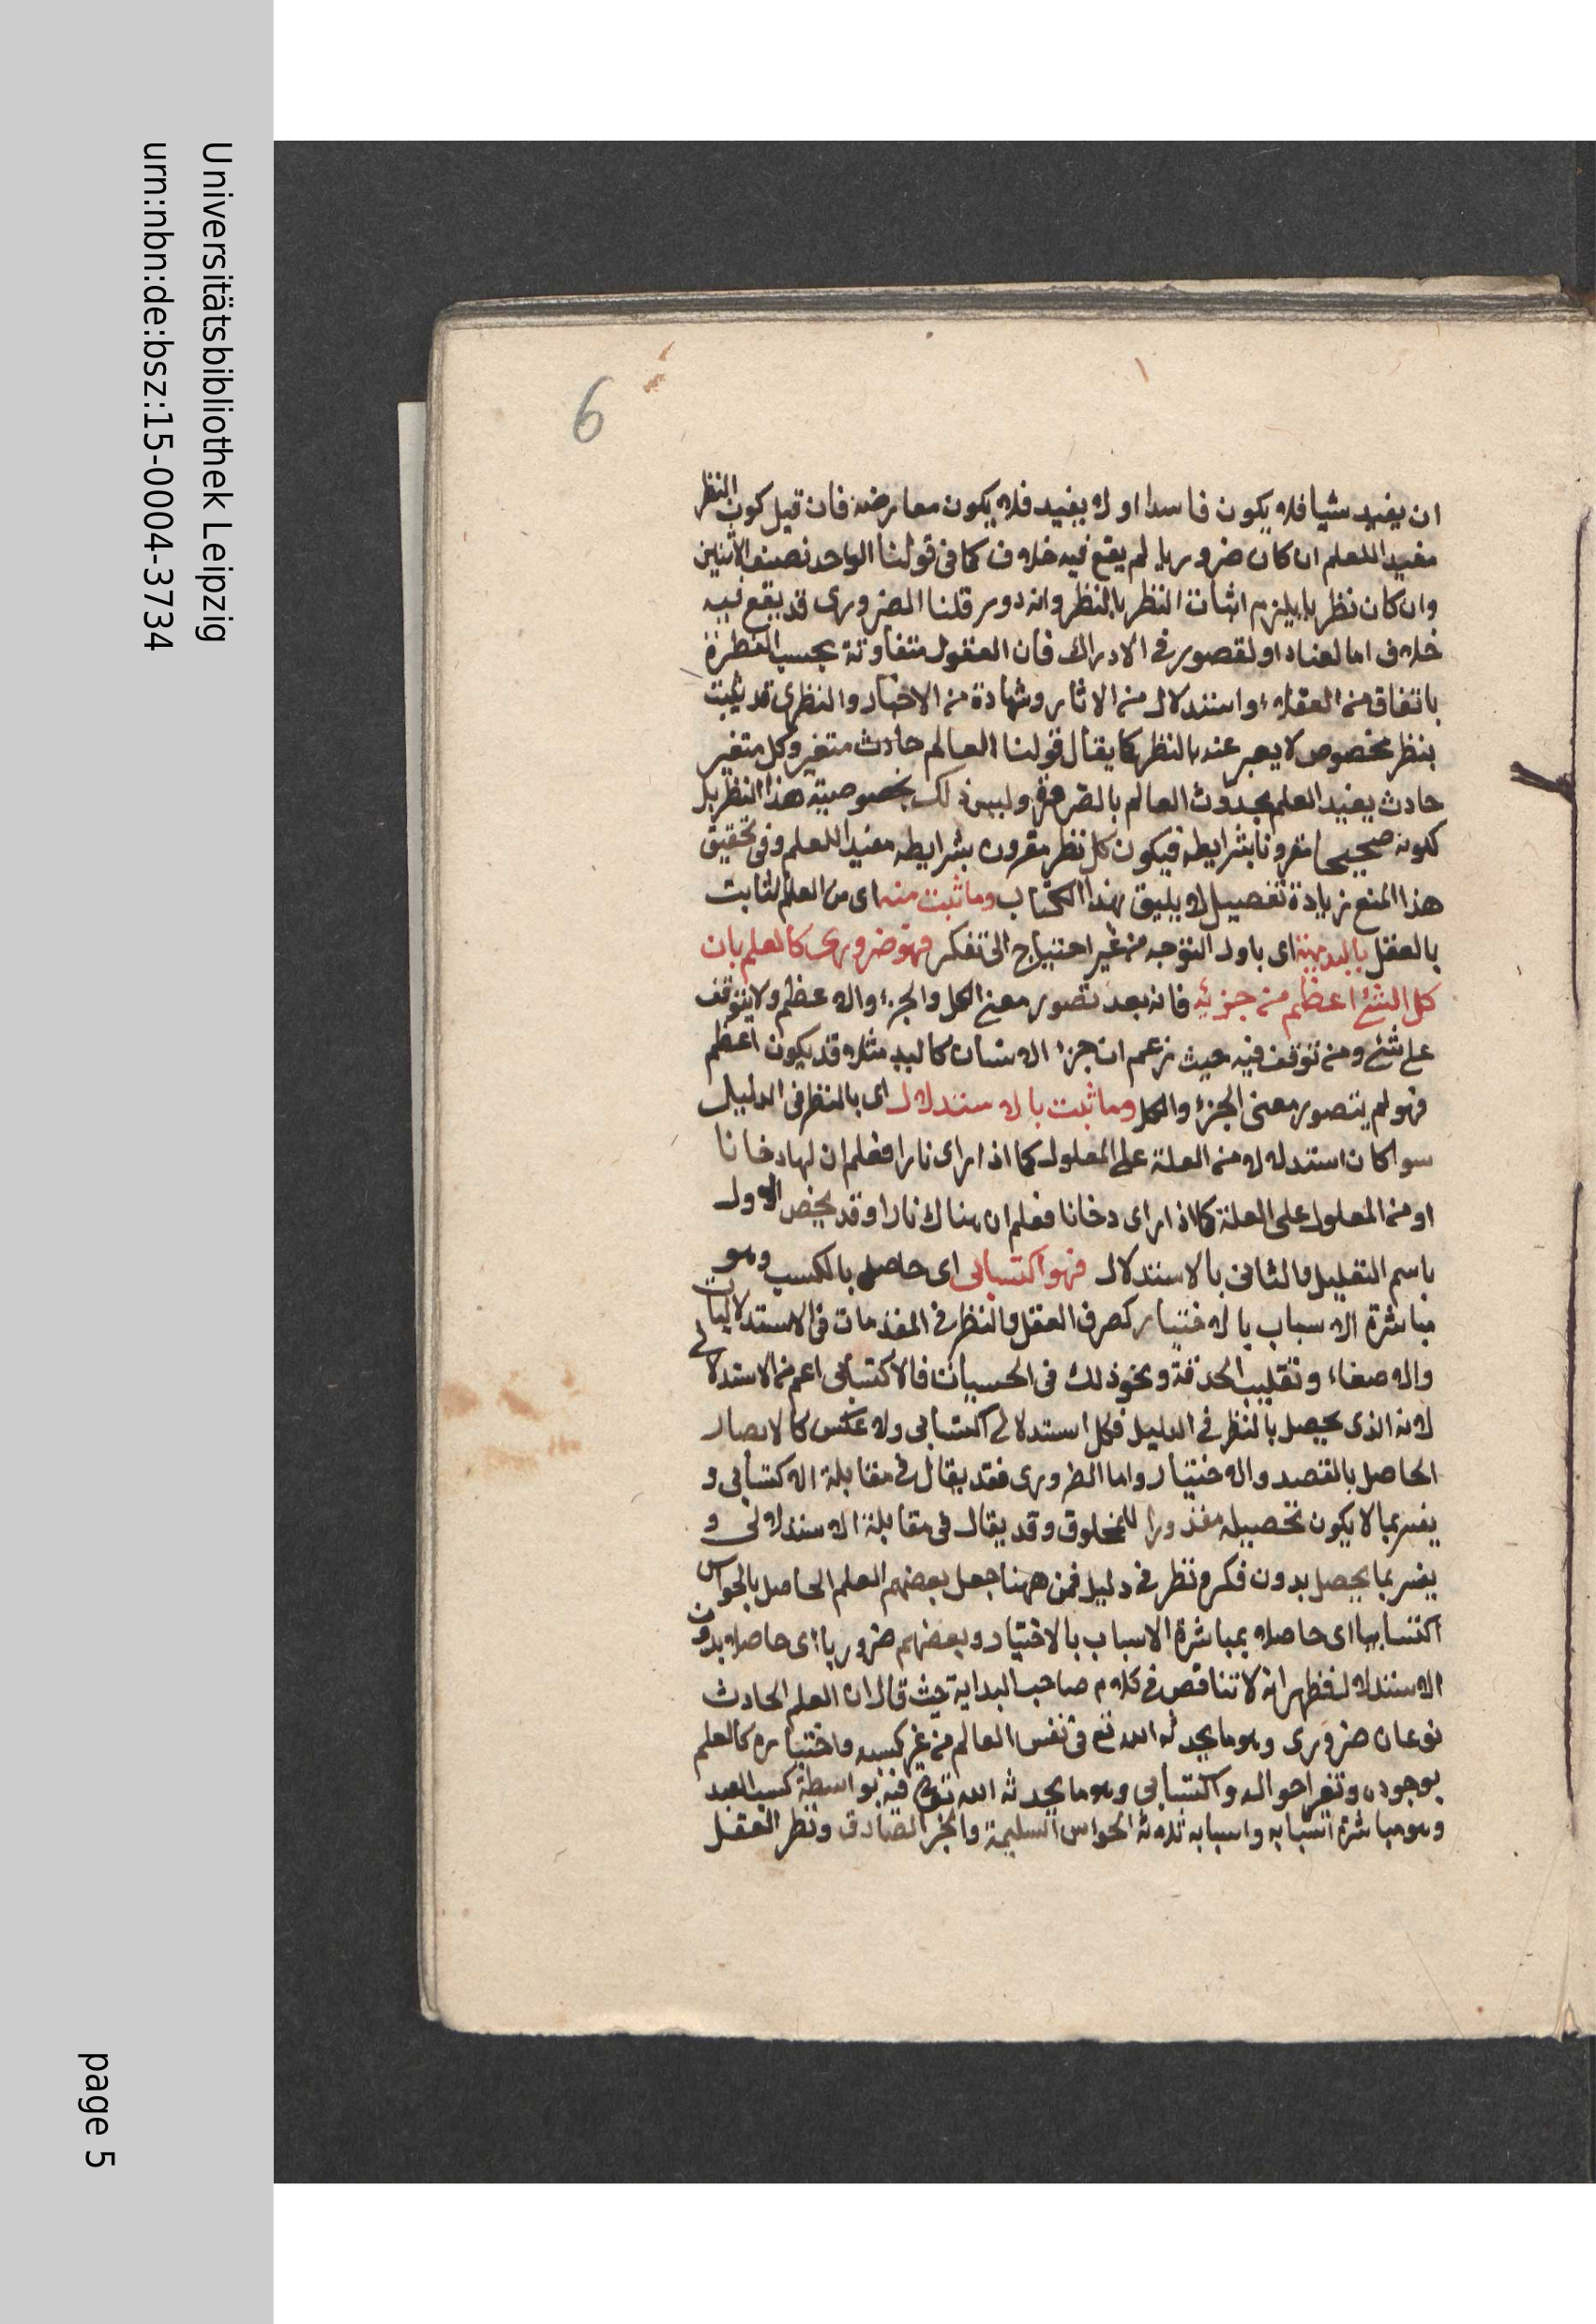 6
ان يفيد شيا فلا يكون فاسدا او لا يفيد فلا يكون معارضة فان قيل كون النظر
مفيدا للعلم ان كان ضروريا لم يقع فيه خلاف كما في قولنا الواحد نصف الاثنين
وان كان نظريا يلزم اثبات النظر بالنظر وانه دور قلنا الضروري قد يقع فيه
خلاف اما لعناد او لقصور في الادراك فان العقول متفاوتة بحسب الفطرة
باتفاق من العقلاء واستدلال من الاثار وشهادة من الاخبار والنظري قد يثبت
بنظر مخصوص لا يعبر عنه بالنظر كما يقال قولنا العالم حادث متغير وكل متغير
حادث يفيد العلم بحدوث العالم بالضرورة وليس ذلك بخصوصية هذا النظر بل
لكونه صحيحا مقرونا بشرايطه فيكون كل نظر مقرون بشرايطه مفيدا للعلم وفي تحقيق
هذا المنع زيادة تفصيل لا يليق بهذا الكتاب وما ثبت منه اى من العلم الثابت
بالعقل بالبديهة اى باول التوجه من غير احتياج الى تفكر فهو ضرورى كالعلم بان
كل الشئ اعظم من جزئه فانه بعد تصور معنى الكل والجزء والاعظم ولا يتوقف
على شئ ومن توقف فيه حيث زعم ان جزء الانسان كاليد مثلا قد يكون اعظم
فهو لم يتصور معنى الجزء والكل وما ثبت بالاستدلال اى بالنظر فى الدليل
سوا كان استدلالا من العلة على المعلول كما اذا راى نارا فعلم ان لها دخانا
او من المعلول على العلة كما اذا راى دخانا فعلم ان هناك نارا وقد يخص الاول
باسم التعليل والثانى بالاستدلال فهو اكتسابى اى حاصل بالكسب وهو
مباشرة الاسباب بالاختيار كصرف العقل والنظر في المقدمات في الاستدلاليات
والاصغاء وتقليب الحدقة ونحو ذلك فى الحسيات فالاكتسابى اعم من الاستدلالي
لانه الذى يحصل بالنظر في الدليل فكل استدلالي اكتسابى ولا عكس كالابصار
الحاصل بالقصد والاختيار واما الضرورى فقد يقال في مقابلة الاكتسابى و
يفسر بما لا يكون تحصيله مقدورا للمخلوق وقد يقال فى مقابلة الاستدلالى و
يفسر بما يحصل بدون فكر ونظر في دليل فمن ههنا جعل بعضهم العلم الحاصل بالحواس
اكتسابيا اى حاصلا بمباشرة الاسباب بالاختيار وبعضهم ضروريا اى حاصلا بدون
الاستدلال فظهر انه لا تناقض في كلام صاحب البداية حيث قال ان العلم الحادث
نوعان ضرورى وهو ما يحدثه الله تع فى نفس العالم من غير كسبه واختياره كالعلم
بوجوده وتغير احواله واكتسابى وهو ما يحدثه الله تع فيه بواسطة كسب العبد
وهو مباشرة اسبابه واسبابه ثلاثة الحواس السليمة والخبر الصادق ونظر العقل
Universitätsbibliothek Leipzig
urn:nbn:de:bsz:15-0004-3734
page 5